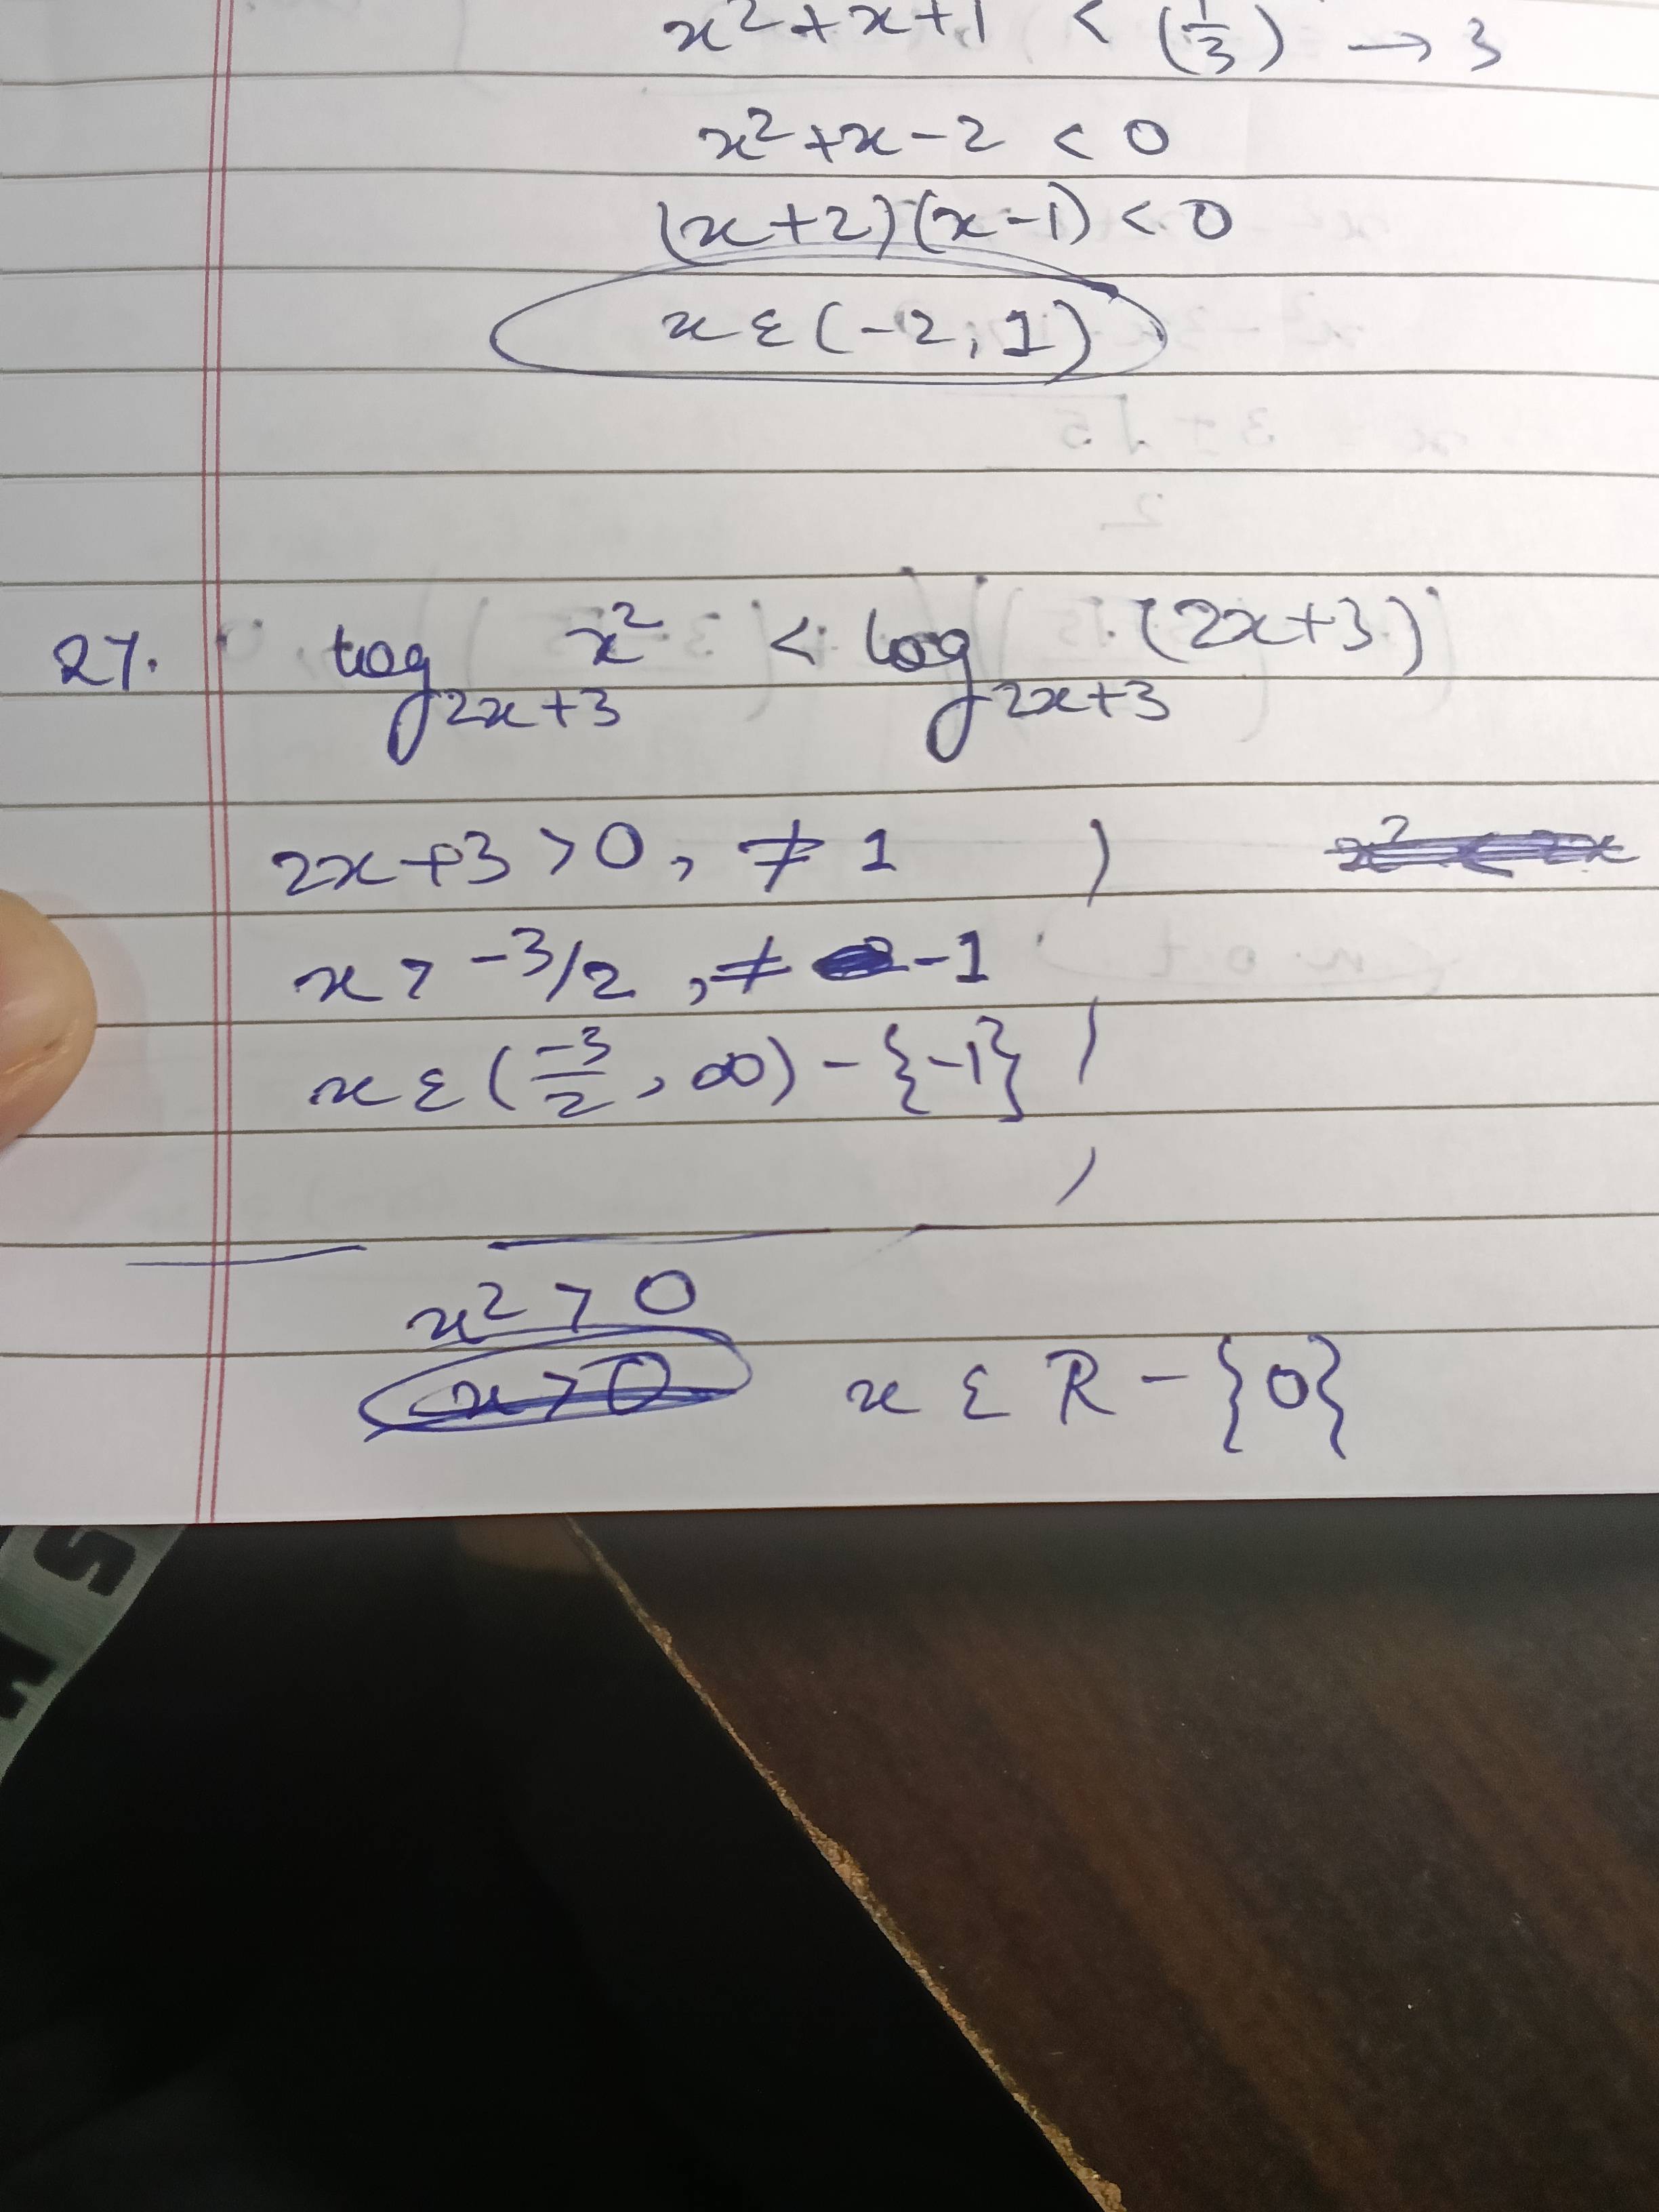 x² + x + 1 < (1/3) → 3
x² + x - 2 < 0
(x + 2) (x - 1) < 0
x ε (-2, 1)
27. log_{2x+3} x² < log_{2x+3} (2x+3)
2x + 3 > 0, ≠ 1
x > -3/2, ≠ -1
x ε (-3/2, ∞) - {-1}
x² > 0
x > 0 x ε R - {0}